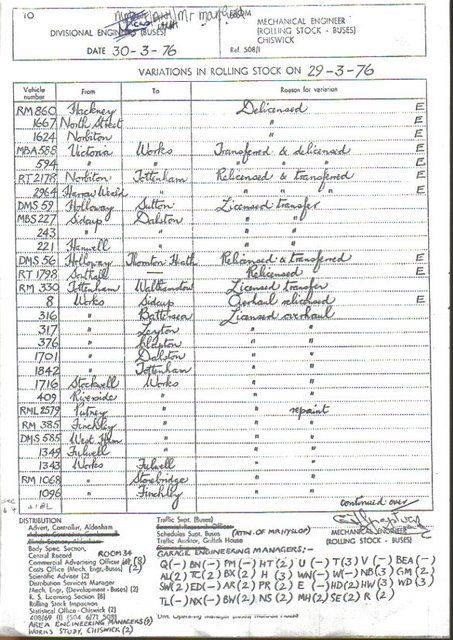 TO
Mr
FROM
DIVISIONAL ENGINEER (BUSES)
MECHANICAL ENGINEER
(ROLLING STOCK - BUSES)
CHISWICK
DATE 30-3-76
Ref. 508/1
VARIATIONS IN ROLLING STOCK ON 29-3-76
Vehicle number From To Reason for variation
RM 860 Hackney Delicensed E
1667 North Street " E
1624 Norbiton " E
MBA 588 Victoria Works Transferred & delicensed E
594 " " " " " E
RT 2178 Norbiton Tottenham Relicensed & transferred E
2964 Harrow Weald " " " " E
DMS 59 Holloway Sutton Licensed transfer
MBS 227 Sidcup Dalston " "
243 " " " "
221 Hanwell " " "
DMS 56 Holloway Thornton Heath Relicensed & transferred E
RT 1798 Southall — Relicensed E
RM 330 Tottenham Walthamstow Licensed transfer
8 Works Sidcup Overhaul relicensed E
316 " Battersea Licensed overhaul
317 " Leyton " "
376 " Clapton " "
1701 " Dalston " "
1842 " Tottenham " "
1716 Stockwell Works " "
409 Riverside " " "
RML 2579 Putney " " repaint
RM 385 Finchley " " "
DMS 585 West Ham " " "
1349 Fulwell " " "
1343 Works Fulwell " "
RM 1068 " Stonebridge " "
1096 " Finchley " "
continued over
DISTRIBUTION
Advert, Controller, Aldenham
Body Spec. Section,
Central Record ROOM 34
Commercial Advertising Officer (3)
Costs Office (Mech. Engr., Buses) (2)
Scientific Adviser (2)
Distribution Services Manager
(Mech. Engr., (Development - Buses)
R. S. Licensing Section (8)
Rolling Stock Inspection
Statistical Office - Chiswick (2)
AREA ENGINEERING MANAGERS
WORKS STUDY, CHISWICK (2)
Traffic Supt. (Buses)
Schedules Supt. Buses (ATTN. OF MR HYSLOP)
Traffic Auditor, Griffith House
MECHANICAL ENGINEER
(ROLLING STOCK - BUSES)
GARAGE ENGINEERING MANAGERS:-
Q(-) BN(-) PM(-) HT(2) U(-) T(3) V(-) BEA(-)
AL(2) TC(2) BX(2) H(3) WN(-) W(-) NB(3) GM(2)
SW(2) ED(-) AK(2) PR(2) E(-) HD(2) HW(3) WD(3)
TL(-) NX(-) BW(2) NS(2) MH(2) SE(2) R(2)